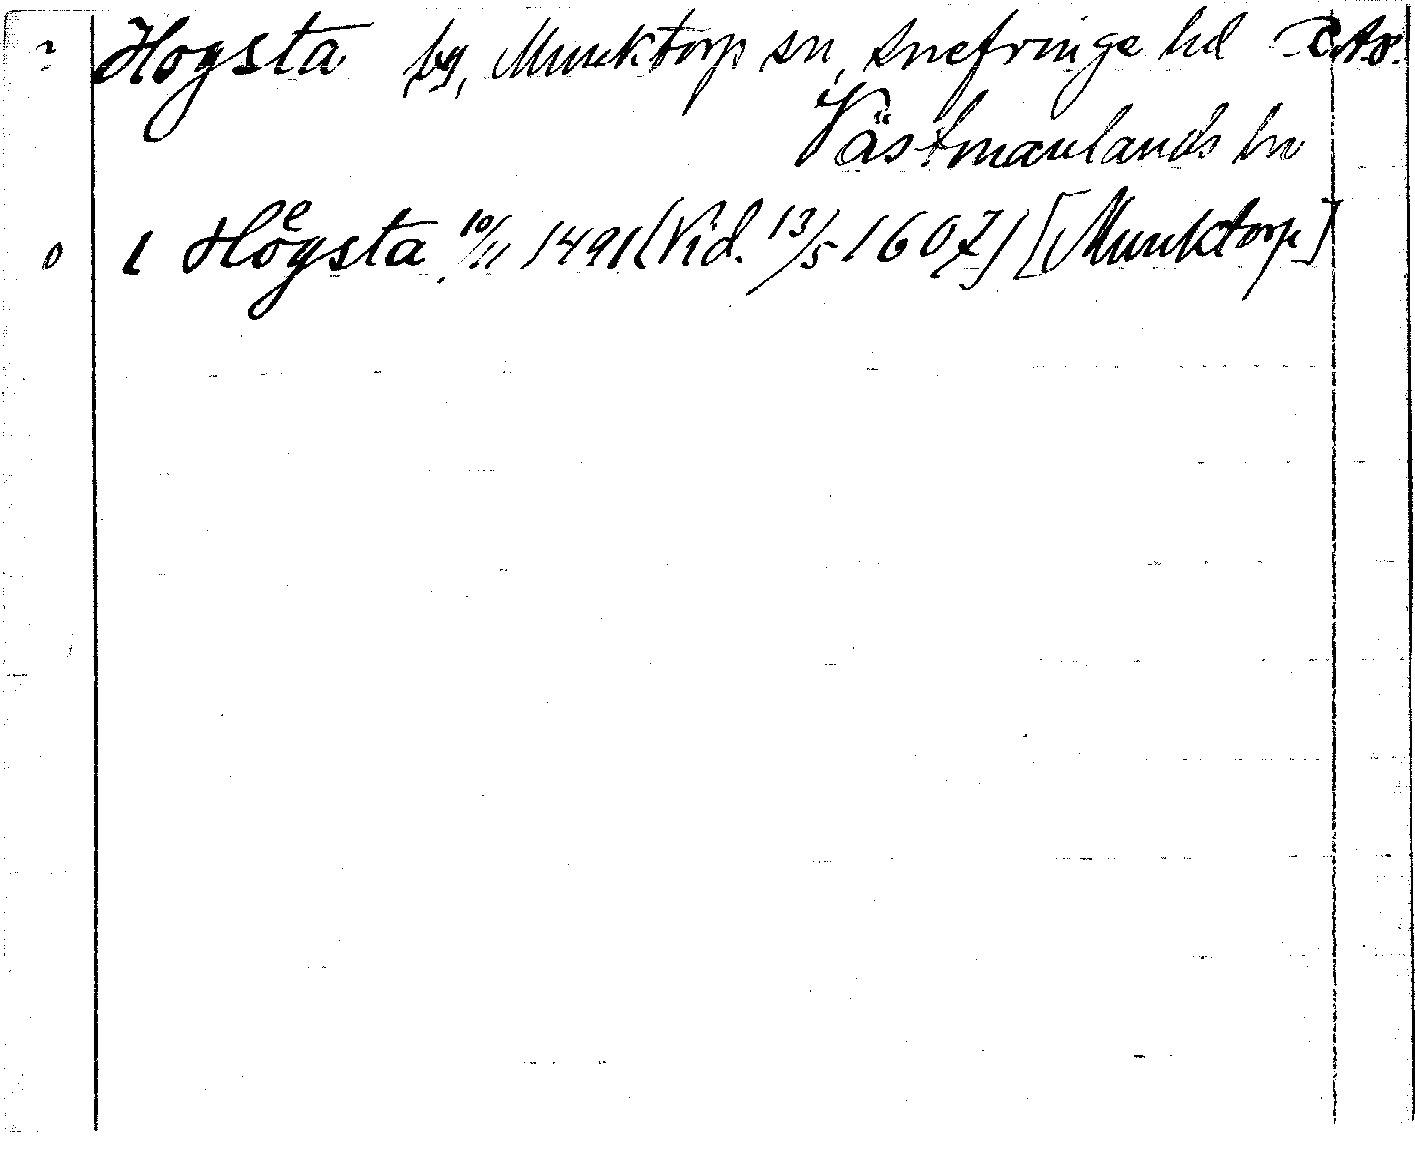 Hogsta by, Munktorp sn, Snefringe hd
Västmanlands ln
I Hoͤgsta 10/11 1491 (Vid. 13/5 1607) [Munktorp]